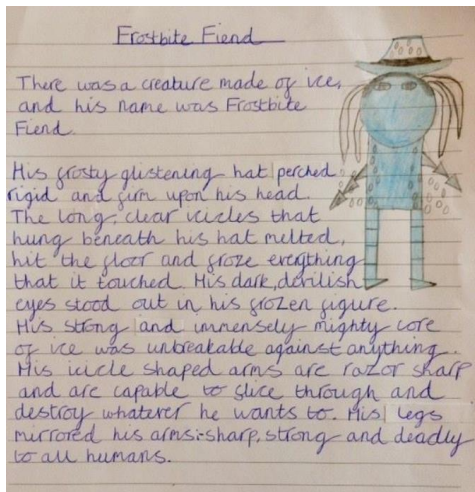 Frostbite Fiend
There was a creature made of ice,
and his name was Frostbite
Fiend.
His frosty glistening hat perched
rigid and firm upon his head.
The long, clear icicles that
hung beneath his hat melted,
hit the floor and froze everything
that it touched. His dark, devilish
eyes stood out in his frozen figure.
His strong and immensely mighty core
of ice was unbreakable against anything.
His icicle shaped arms are razor sharp
and are capable to slice through and
destroy whatever he wants to. His legs
mirrored his arms:-sharp, strong and deadly
to all humans.